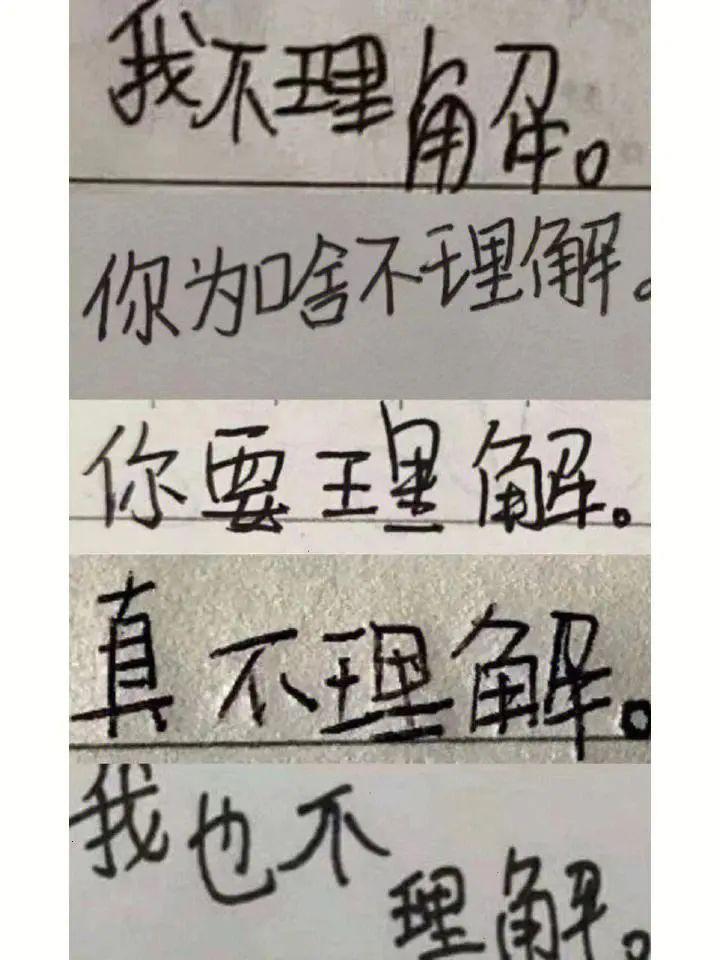 我不理解。
你为啥不理解。
你要理解。
真不理解。
我也不理解。